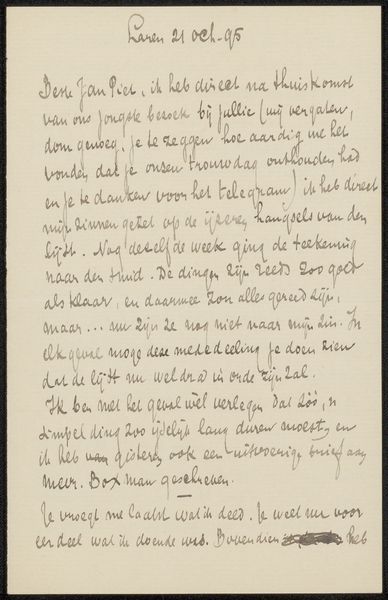 Laren 21 Oct-95
Beste Jan Piet, ik heb direct na thuiskomst
van ons jongste bezoek bij jullie (wij vergaten,
dom genoeg, je te zeggen hoe aardig we het
vonden dat je onzen trouwdag onthouden had
en je te danken voor het telegram) ik heb direct
mijn zinnen gezet op de ijzeren hangsels van den
lijst. Nog dezelfde week ging de teekening
naar den smid. De dingen zijn reeds zoo goed
als klaar, en daarmee zou alles gereed zijn,
maar... nu zijn ze nog niet naar mijn zin. In
elk geval moge deze mededeeling je doen zien
dat de lijst nu weldra in orde zijn zal.
Ik ben met het geval wèl verlegen. Dat zóó, 'n
simpel ding zoo ijdelijk lang duren moest, en
ik heb gisteren ook een uitvoerige brief aan
meur. Boxman geschreven.
Je vroegt me laatst wat ik deed. Je weet nu voor
een deel wat ik doende was. Bovendien heb